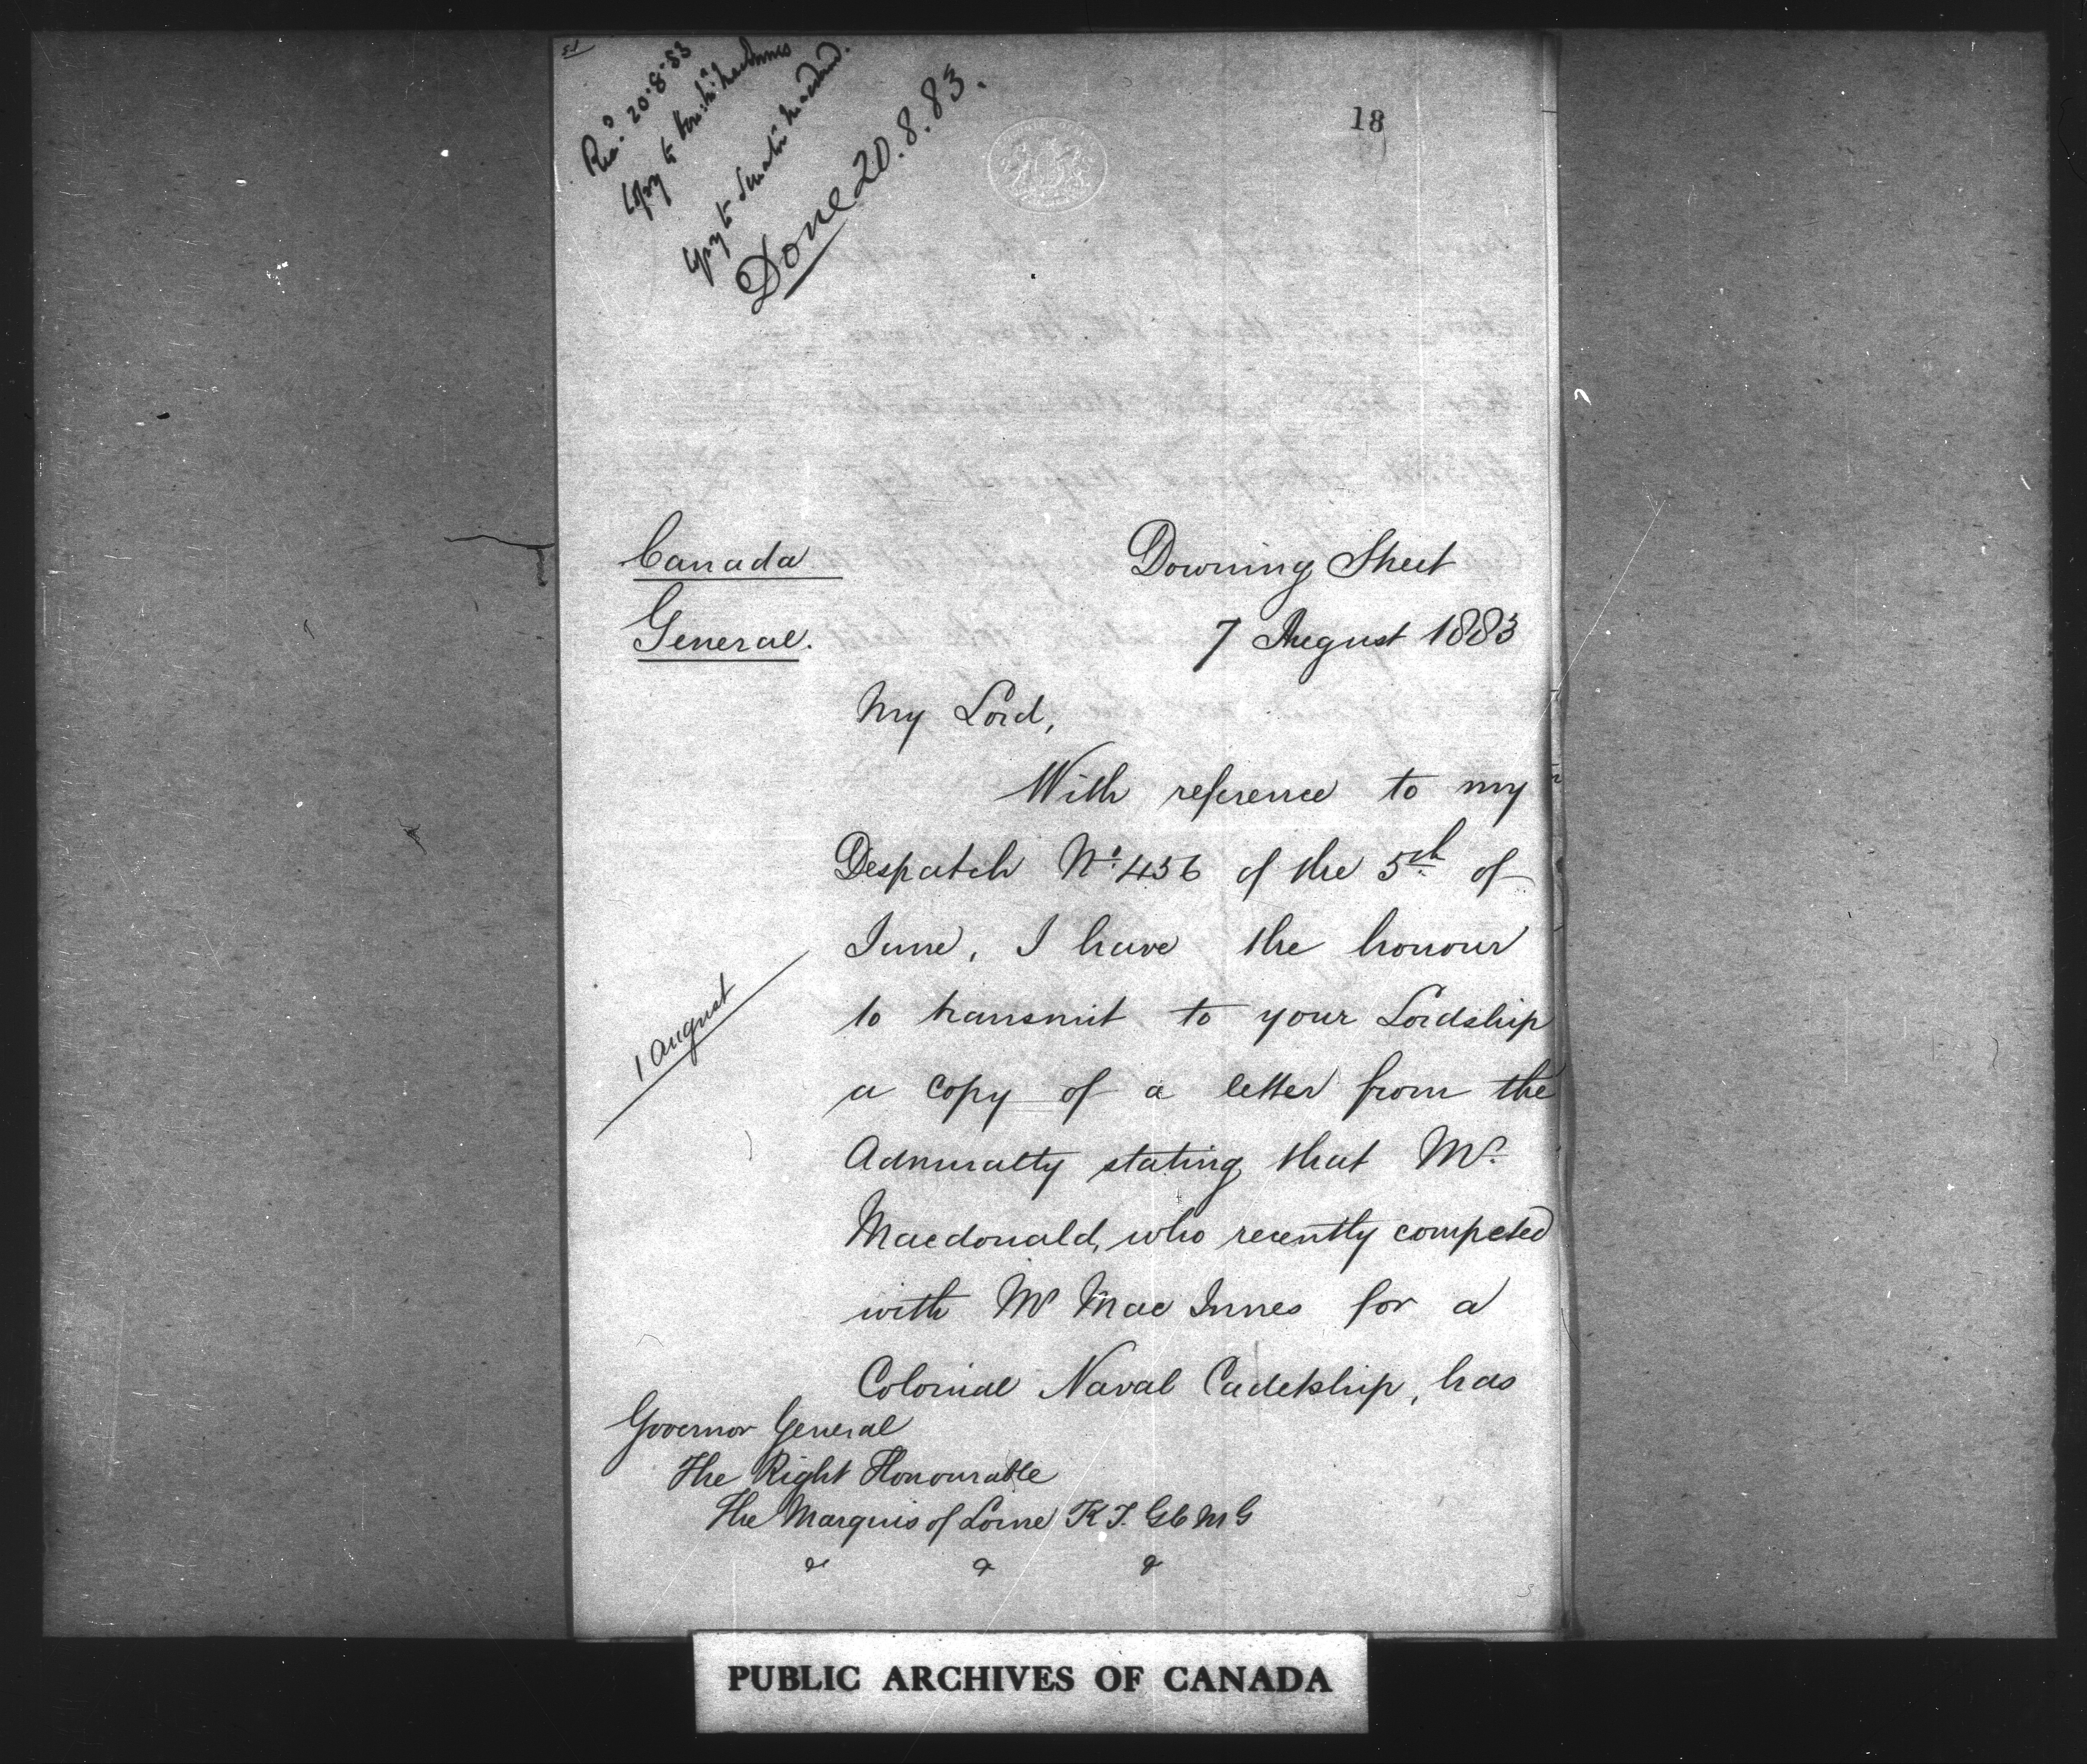 51
Rec'd 20.8.83
Copy to Hon. Mr MacInnes
Copy to Senator Macdonald.
Done 20.8.83.
18
Canada
General.
Downing Street
7 August 1883
My Lord,
With reference to my
Despatch No. 456 of the 5th of
June, I have the honour
to transmit to your Lordship
1 August
a copy of a letter from the
Admiralty stating that Mr.
Macdonald, who recently competed
with Mr Mac Innes for a
Colonial Naval Cadetship, has
Governor General
The Right Honourable
The Marquis of Lorne K.T. GCMG
& & &
PUBLIC ARCHIVES OF CANADA